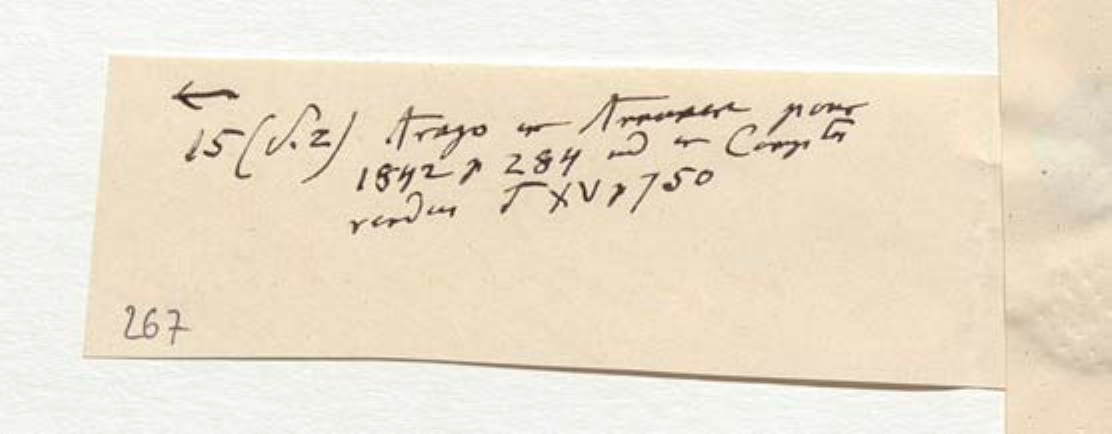 ←
15 (S. 2) Arago in Annuaire pour
1842 p 284 und in Comptes
rendus T XV p 750
267